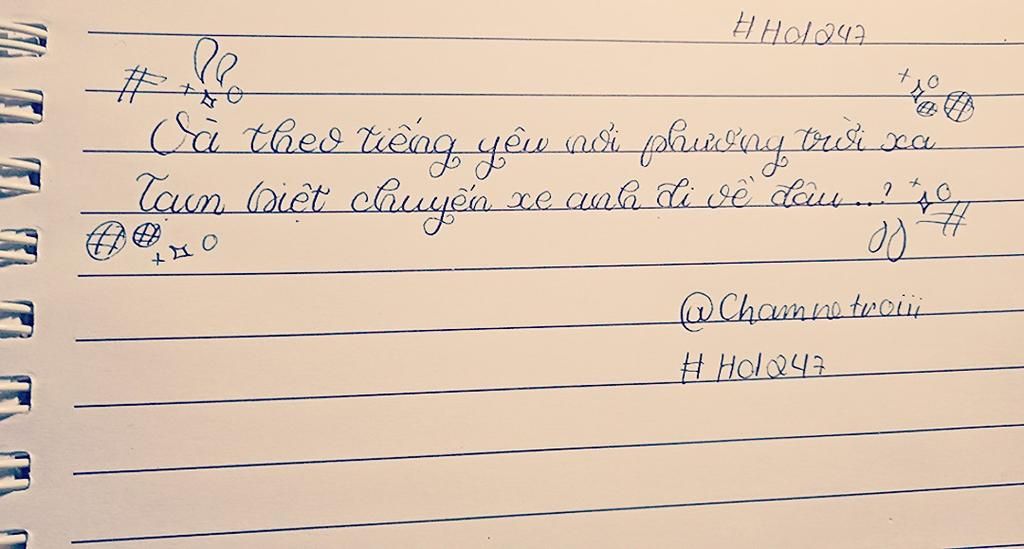 #H01247
Và theo tiếng yêu nơi phương trời xa
Tạm biệt chuyến xe anh đi về đâu...?
@Chamnetroiii
#H01247